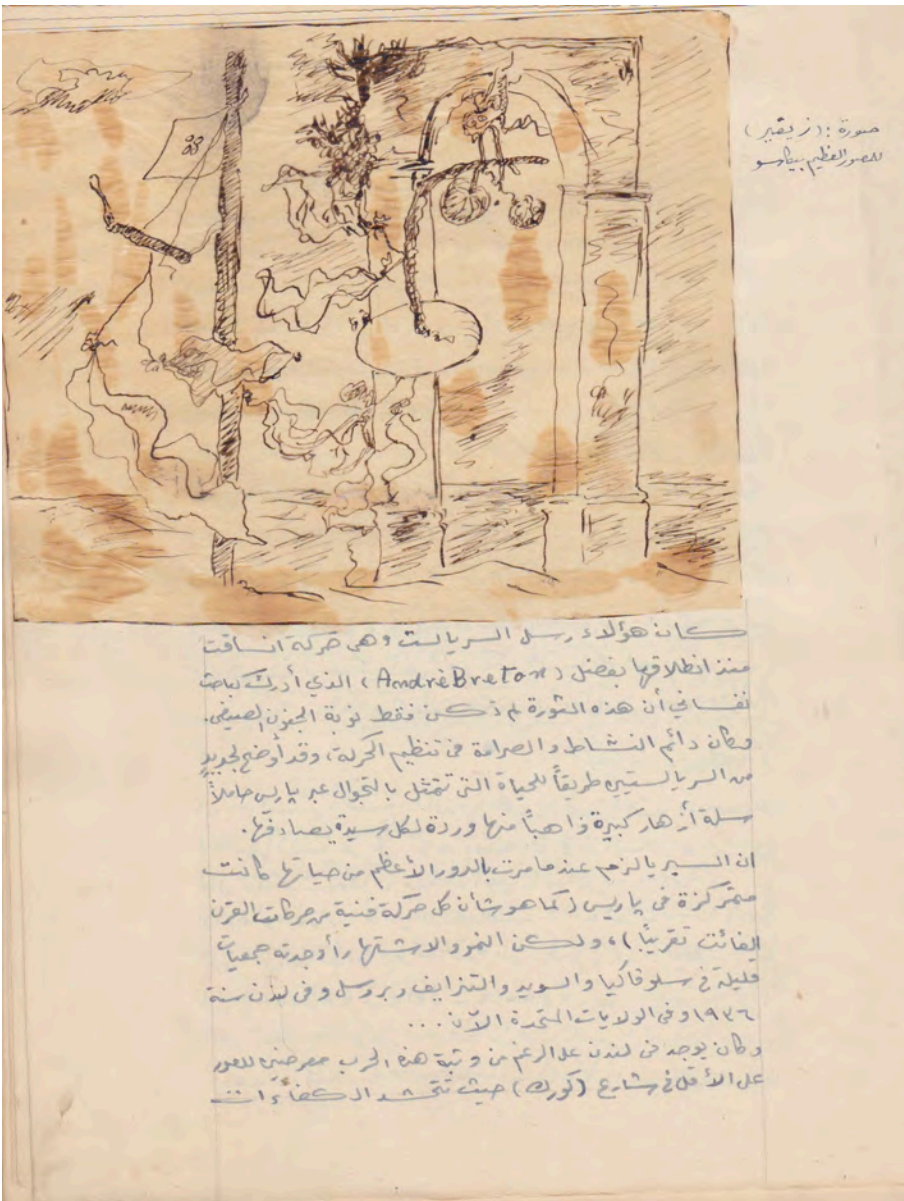 صورة : ( زيقير )
للمصور العظيم بيكاسو
كان هؤلاء رسل السريالست وهي حركة انساقت
منذ انطلاقها بفضل ( André Breton ) الذي أدرك كباحث
نفساني أن هذه الثورة لم تكن فقط نوبة الجنون الصبيغي.
وكان دائم النشاط والصرامة في تنظيم الحركة، وقد أوضح لجديدٍ
من السرياليستيين طريقاً للحياة التي تتمثل بالتجوال عبر پاريس حاملاً
سلة أزهار كبيرة ذاهباً منها وردة لكل سيدة يصادفها.
ان السيريالزم عندما مرت بالدور الأعظم من حياتها كانت
متمركزة في پاريس ( كما هو شأن كل حركة فنية من حركات القرن
الفائت تقريبًا )، ولكن النمو والاشتهار أوجدته جمعيات
قليلة في سلوفاكيا والسويد والتنرايف وبروسل وفي لندن سنة
١٩٣٦ وفي الولايات المتحدة الآن ...
وكان يوجد في لندن على الرغم من وثبة هذه الحرب معرضين للصور
على الأقل في شارع (كورك) حيث تتحشد الكفاءات